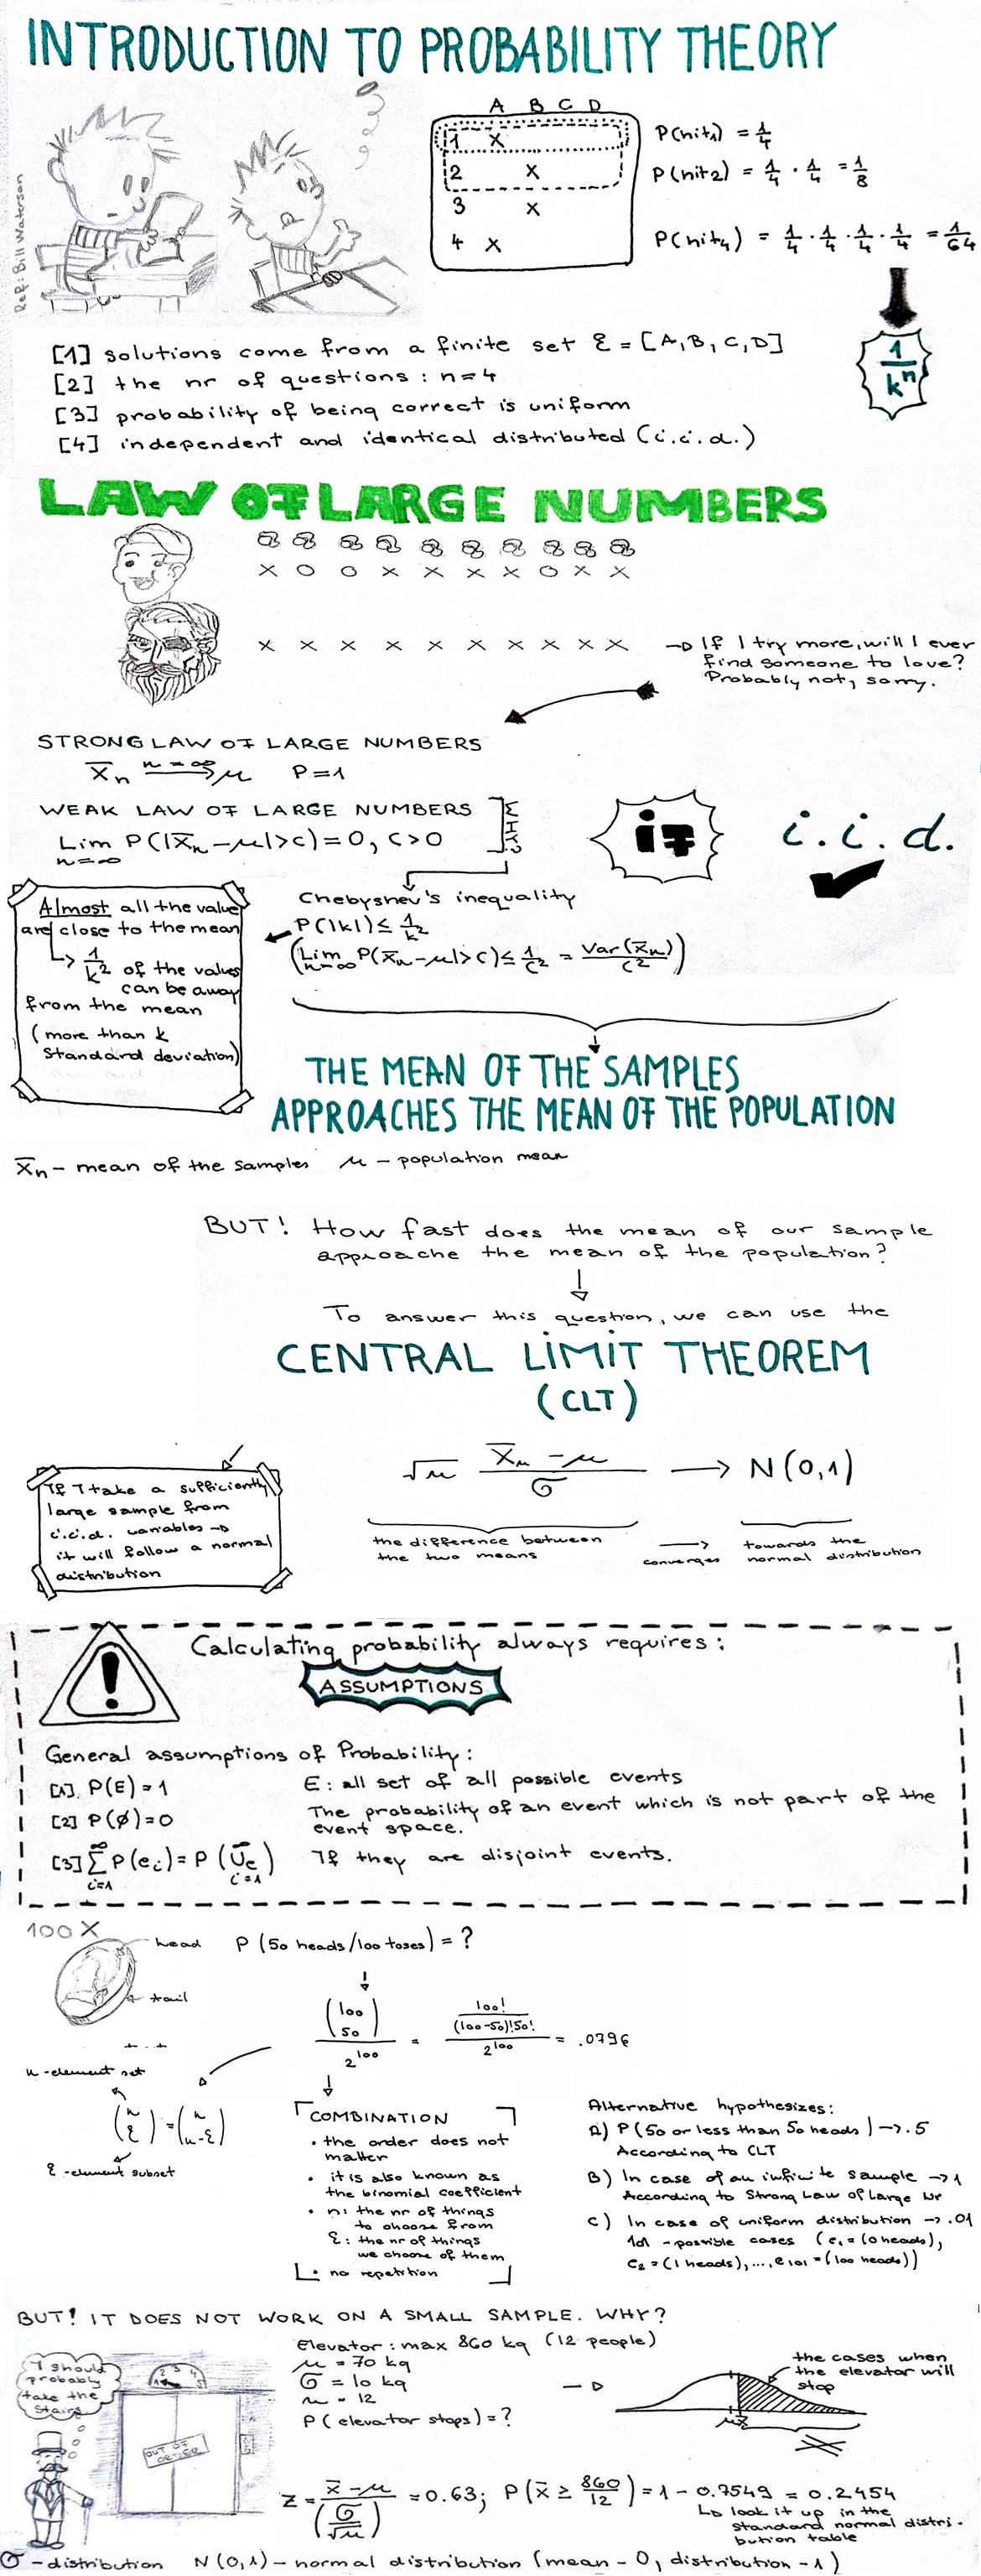 INTRODUCTION TO PROBABILITY THEORY
Ref: Bill Waterson
A B C D
1 X
2 X
3 X
4 X
P(hit1) = 1/4
P(hit2) = 1/4 · 1/4 = 1/8
P(hit4) = 1/4 · 1/4 · 1/4 · 1/4 = 1/64
1/k^n
[1] solutions come from a finite set Ɛ = [A, B, C, D]
[2] the nr of questions: n=4
[3] probability of being correct is uniform
[4] independent and identical distributed (i.i.d.)
LAW OF LARGE NUMBERS
X O O X X X X O X X
X X X X X X X X X X
→ If I try more, will I ever
find someone to love?
Probably not, sorry.
STRONG LAW OF LARGE NUMBERS
X̄n n=∞→ μ P=1
WEAK LAW OF LARGE NUMBERS
Lim n=∞ P(|X̄n - μ|>c)=0, c>0
WHY?
if i.i.d.
Almost all the value
are close to the mean
↳ 1/k² of the values
can be away
from the mean
(more than k
standard deviation)
Chebyshev's inequality
P(|k|) ≤ 1/k²
(Lim n=∞ P(x̄n - μ|>c) ≤ 1/c² = Var(x̄n)/c²)
THE MEAN OF THE SAMPLES
APPROACHES THE MEAN OF THE POPULATION
X̄n - mean of the samples μ - population mean
BUT! How fast does the mean of our sample
approache the mean of the population?
To answer this question, we can use the
CENTRAL LIMIT THEOREM
(CLT)
If I take a sufficiently
large sample from
i.i.d. variables →
it will follow a normal
distribution
√n (X̄n - μ)/σ → N(0,1)
the difference between
the two means
→
converges
towards the
normal distribution
Calculating probability always requires:
ASSUMPTIONS
General assumptions of Probability:
[1]. P(E)=1 E: all set of all possible events
[2] P(∅)=0 The probability of an event which is not part of the
event space.
[3] ∞ Σ i=1 P(ei) = P(∞ U i=1 e) If they are disjoint events.
100 X
head
tail
P (50 heads/100 toses) = ?
(100 50)/2^100 = (100!/(100-50)!50!)/2^100 = .0796
n-element set
(n Ɛ) = (n n-Ɛ)
Ɛ-element subset
COMBINATION
• the order does not
matter
• it is also known as
the binomial coefficient
• n: the nr of things
to choose from
Ɛ: the nr of things
we choose of them
• no repetition
Alternative hypothesizes:
A) P(50 or less than 50 heads) → .5
According to CLT
B) In case of an infinite sample → 1
According to Strong Law of Large Nr
C) In case of uniform distribution → .01
101 - possible cases (e1 = (0 heads),
e2 = (1 heads), ..., e101 = (100 heads))
BUT! IT DOES NOT WORK ON A SMALL SAMPLE. WHY?
I should
probably
take the
stairs
OUT OF
ORDER
Elevator: max 860 kg (12 people)
μ = 70 kg
σ = 10 kg
n = 12
P(elevator stops) = ?
the cases when
the elevator will
stop
z = (x̄ - μ)/(σ/√n) = 0.63; P(x̄ ≥ 860/12) = 1 - 0.7549 = 0.2454
↳ look it up in the
standard normal distri-
bution table
σ - distribution N(0,1) - normal distribution (mean - 0, distribution - 1)